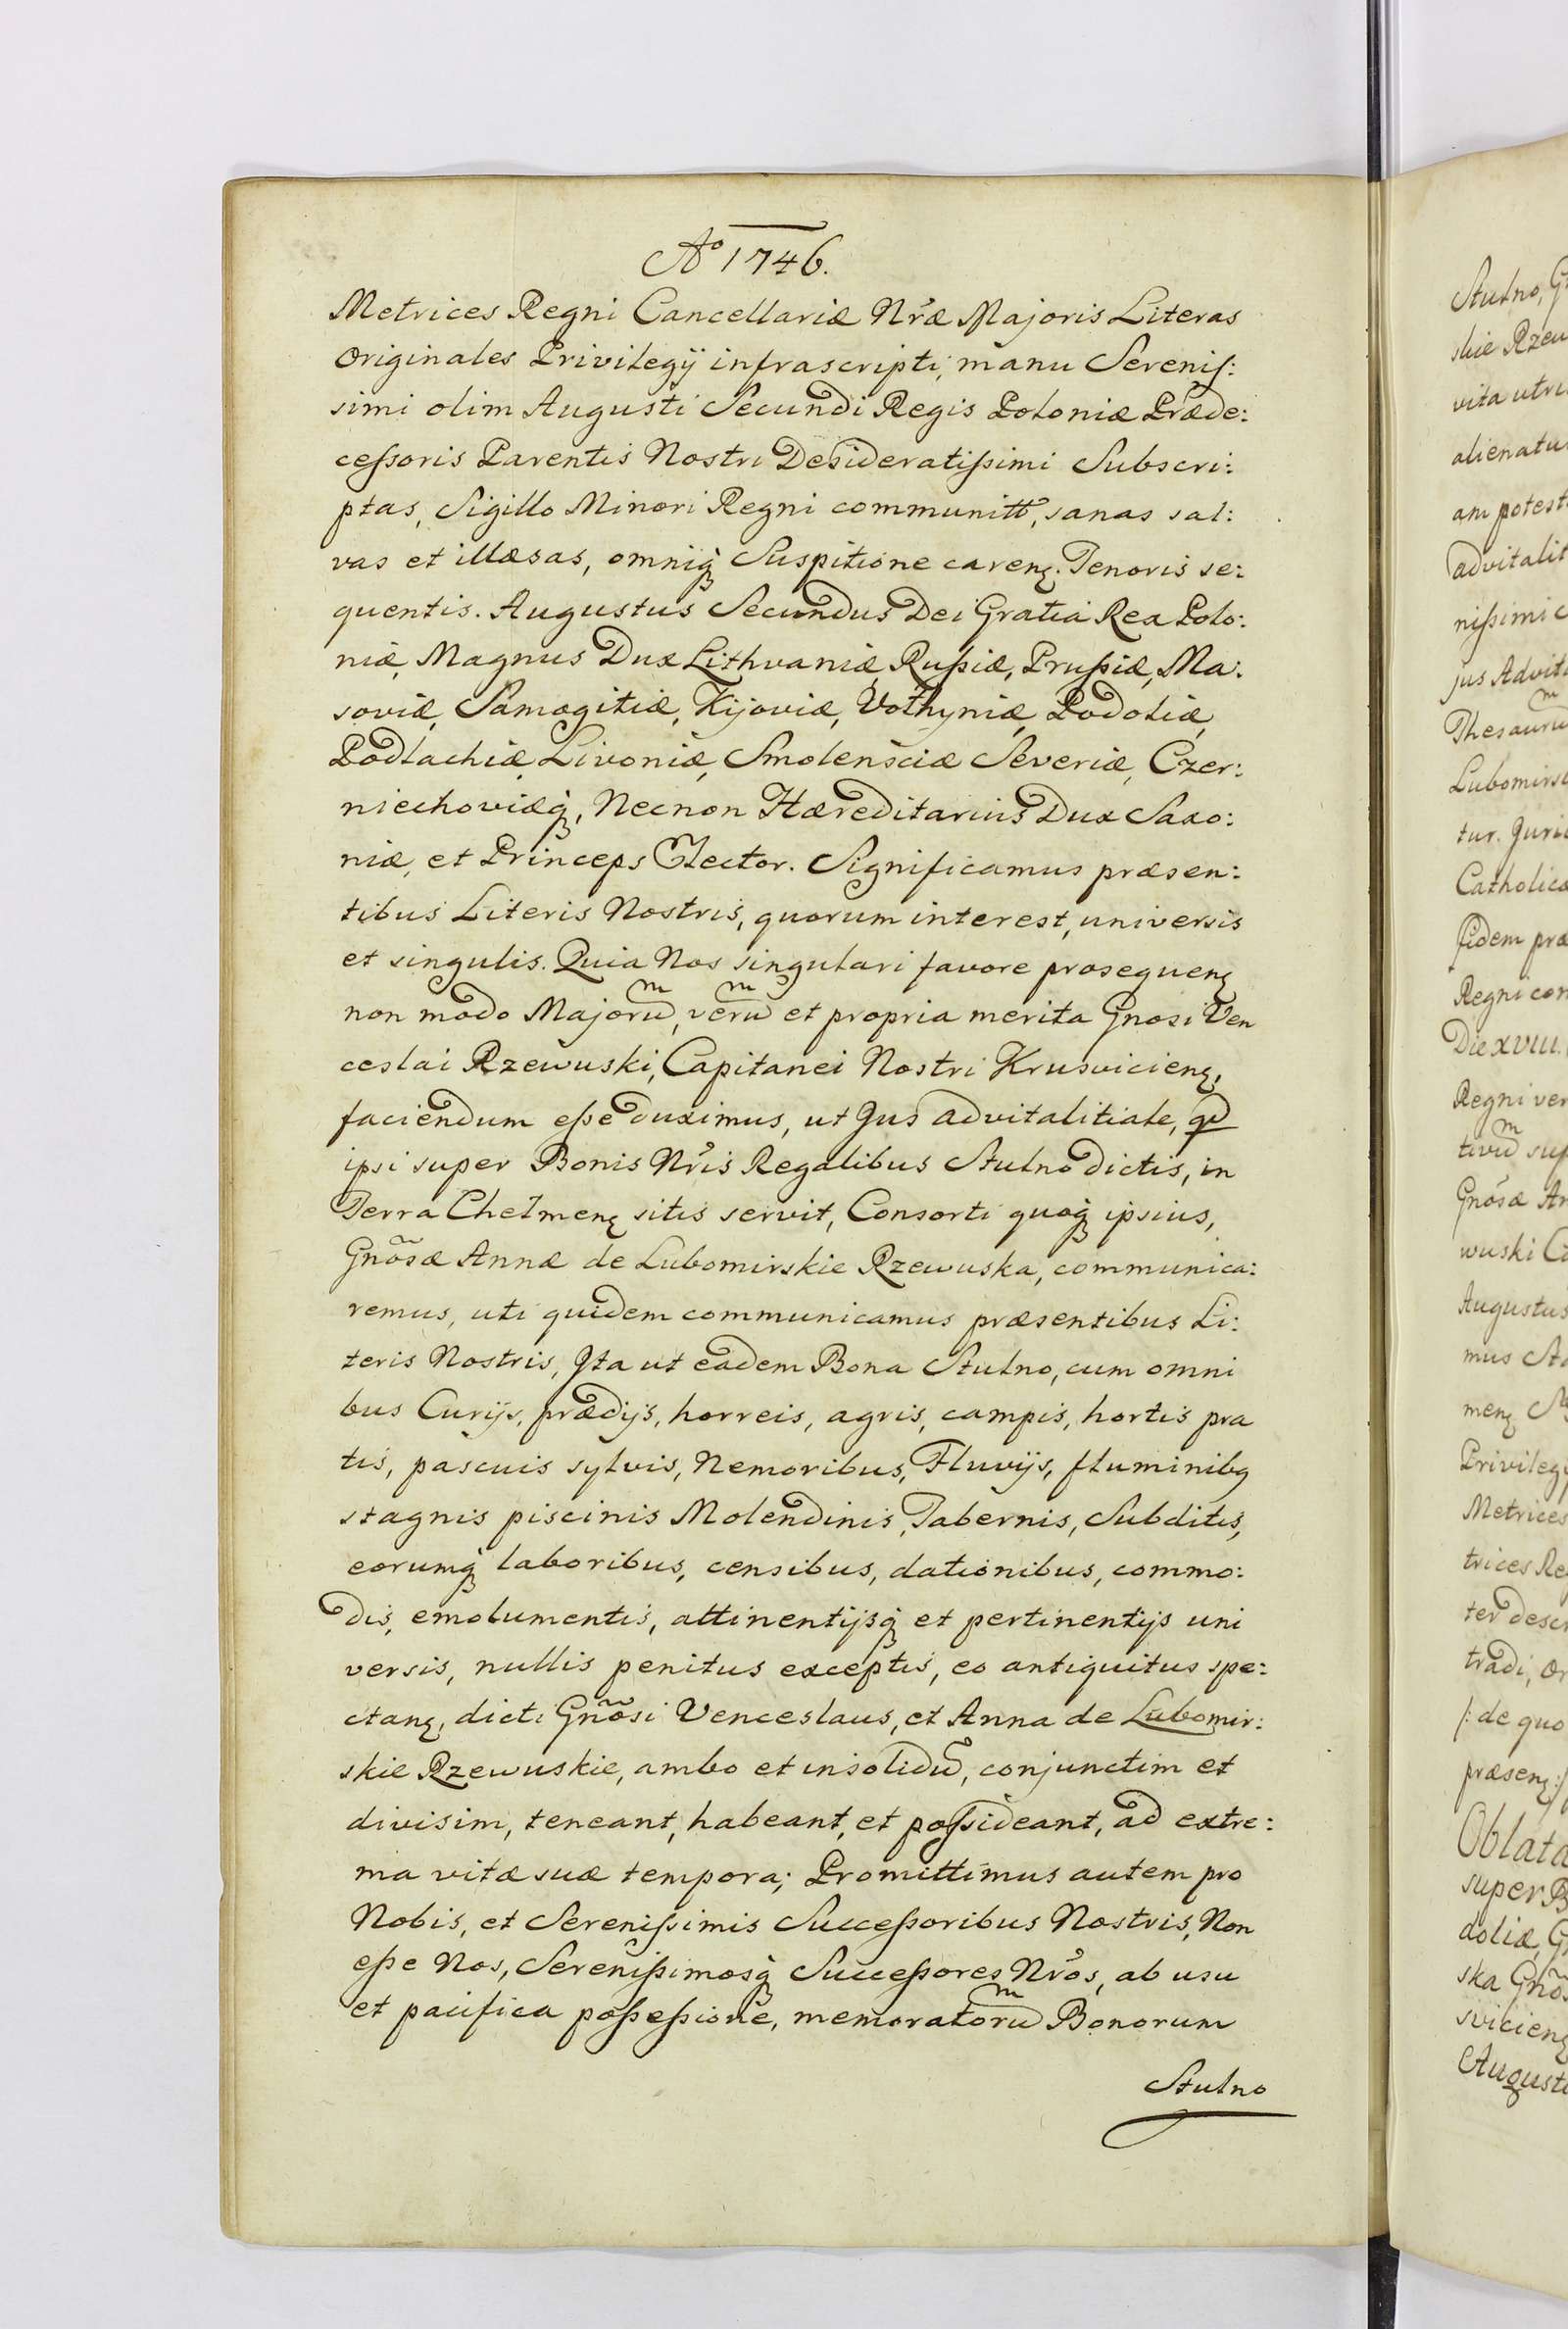 Aº 1746.
Metrices Regni Cancellariæ Nr̃æ Majoris Literas
Originales Privilegÿ infrascripti, manu Serenis:
simi olim Augusti Secundi Regis Poloniæ Præde:
cessoris Parentis Nostri Desideratissimi Subscri:
ptas, Sigillo Minori Regni communitt, sanas sal:
vas et illæsas, omniq̃ Suspitione careng. Tenoris se:
quentis. Augustus Secundus Dei Gratia Rex Polo:
niæ, Magnus Dux Lithvaniæ, Russiæ, Prussiæ, Ma:
soviæ, Samogitiæ, Kijoviæ, Volhyniæ, Podoliæ,
Podlachiæ, Livoniæ, Smolensciæ Severiæ, Czer:
niechoviæq̃, Necnon Hæreditarius Dux Saxo:
niæ, et Princeps Elector. Significamus præsen:
tibus Literis Nostris, quorum interest, universis
et singulis. Quia Nos singulari favore prosequeng
non modo Majorum̃, verum̃ et propria merita Gnosi Ven
ceslai Rzewuski, Capitanei Nostri Krusvicieng,
faciendum esse duximus, ut Jus advitalitiale, qd
ipsi super Bonis Nr̃is Regalibus Stulno dictis, in
Terra Chełmeng sitis servit, Consorti quoq̃ ipsius,
Gnõsæ Annæ de Lubomirskie Rzewuska, communica:
remus, uti quidem communicamus præsentibus Li:
teris Nostris, Jta ut eadem Bona Stulno, cum omni
bus Curijs, prædijs, horreis, agris, campis, hortis pra
tis, pascuis sylvis, Nemoribus, Fluvijs, fluminibg
stagnis piscinis Molendinis, Tabernis, Subditis,
eorumq̃ laboribus, censibus, dationibus, commo:
dis, emolumentis, attinentijsq̃ et pertinentijs uni
versis, nullis penitus exceptis, eo antiquitus spe:
ctang, dicti Gnõsi Venceslaus, et Anna de Lubomir:
skie Rzewuskie, ambo et insolidũ, conjunctim et
divisim, teneant, habeant, et possideant, ad extre:
ma vitæ suæ tempora; Promittimus autem pro
Nobis, et Serenissimis Successoribus Nostris, Non
esse Nos, Serenissimosq̃ Successores Nr̃os, ab usu
et pacifica possessione, memoratorum̃ Bonorum
Stulno
Stulno, G
skie Rzew
vita utri
alienatu
am potest
advitalit
nissimi
jus Advit
Thesaurum̃
Lubomirs
tur. Juri
Catholica
fidem præ
Regni con
Die XVIII.
Regni ver
tivum̃ sup
Gnõsæ An
wuski Ca
Augustus
mus
meng
Privileg
Metrices
trices Re
ter descr
tradi,
/: de quo
præseng:/
Oblata
super B
doliæ, G
ska Gnõs
svicieng
August